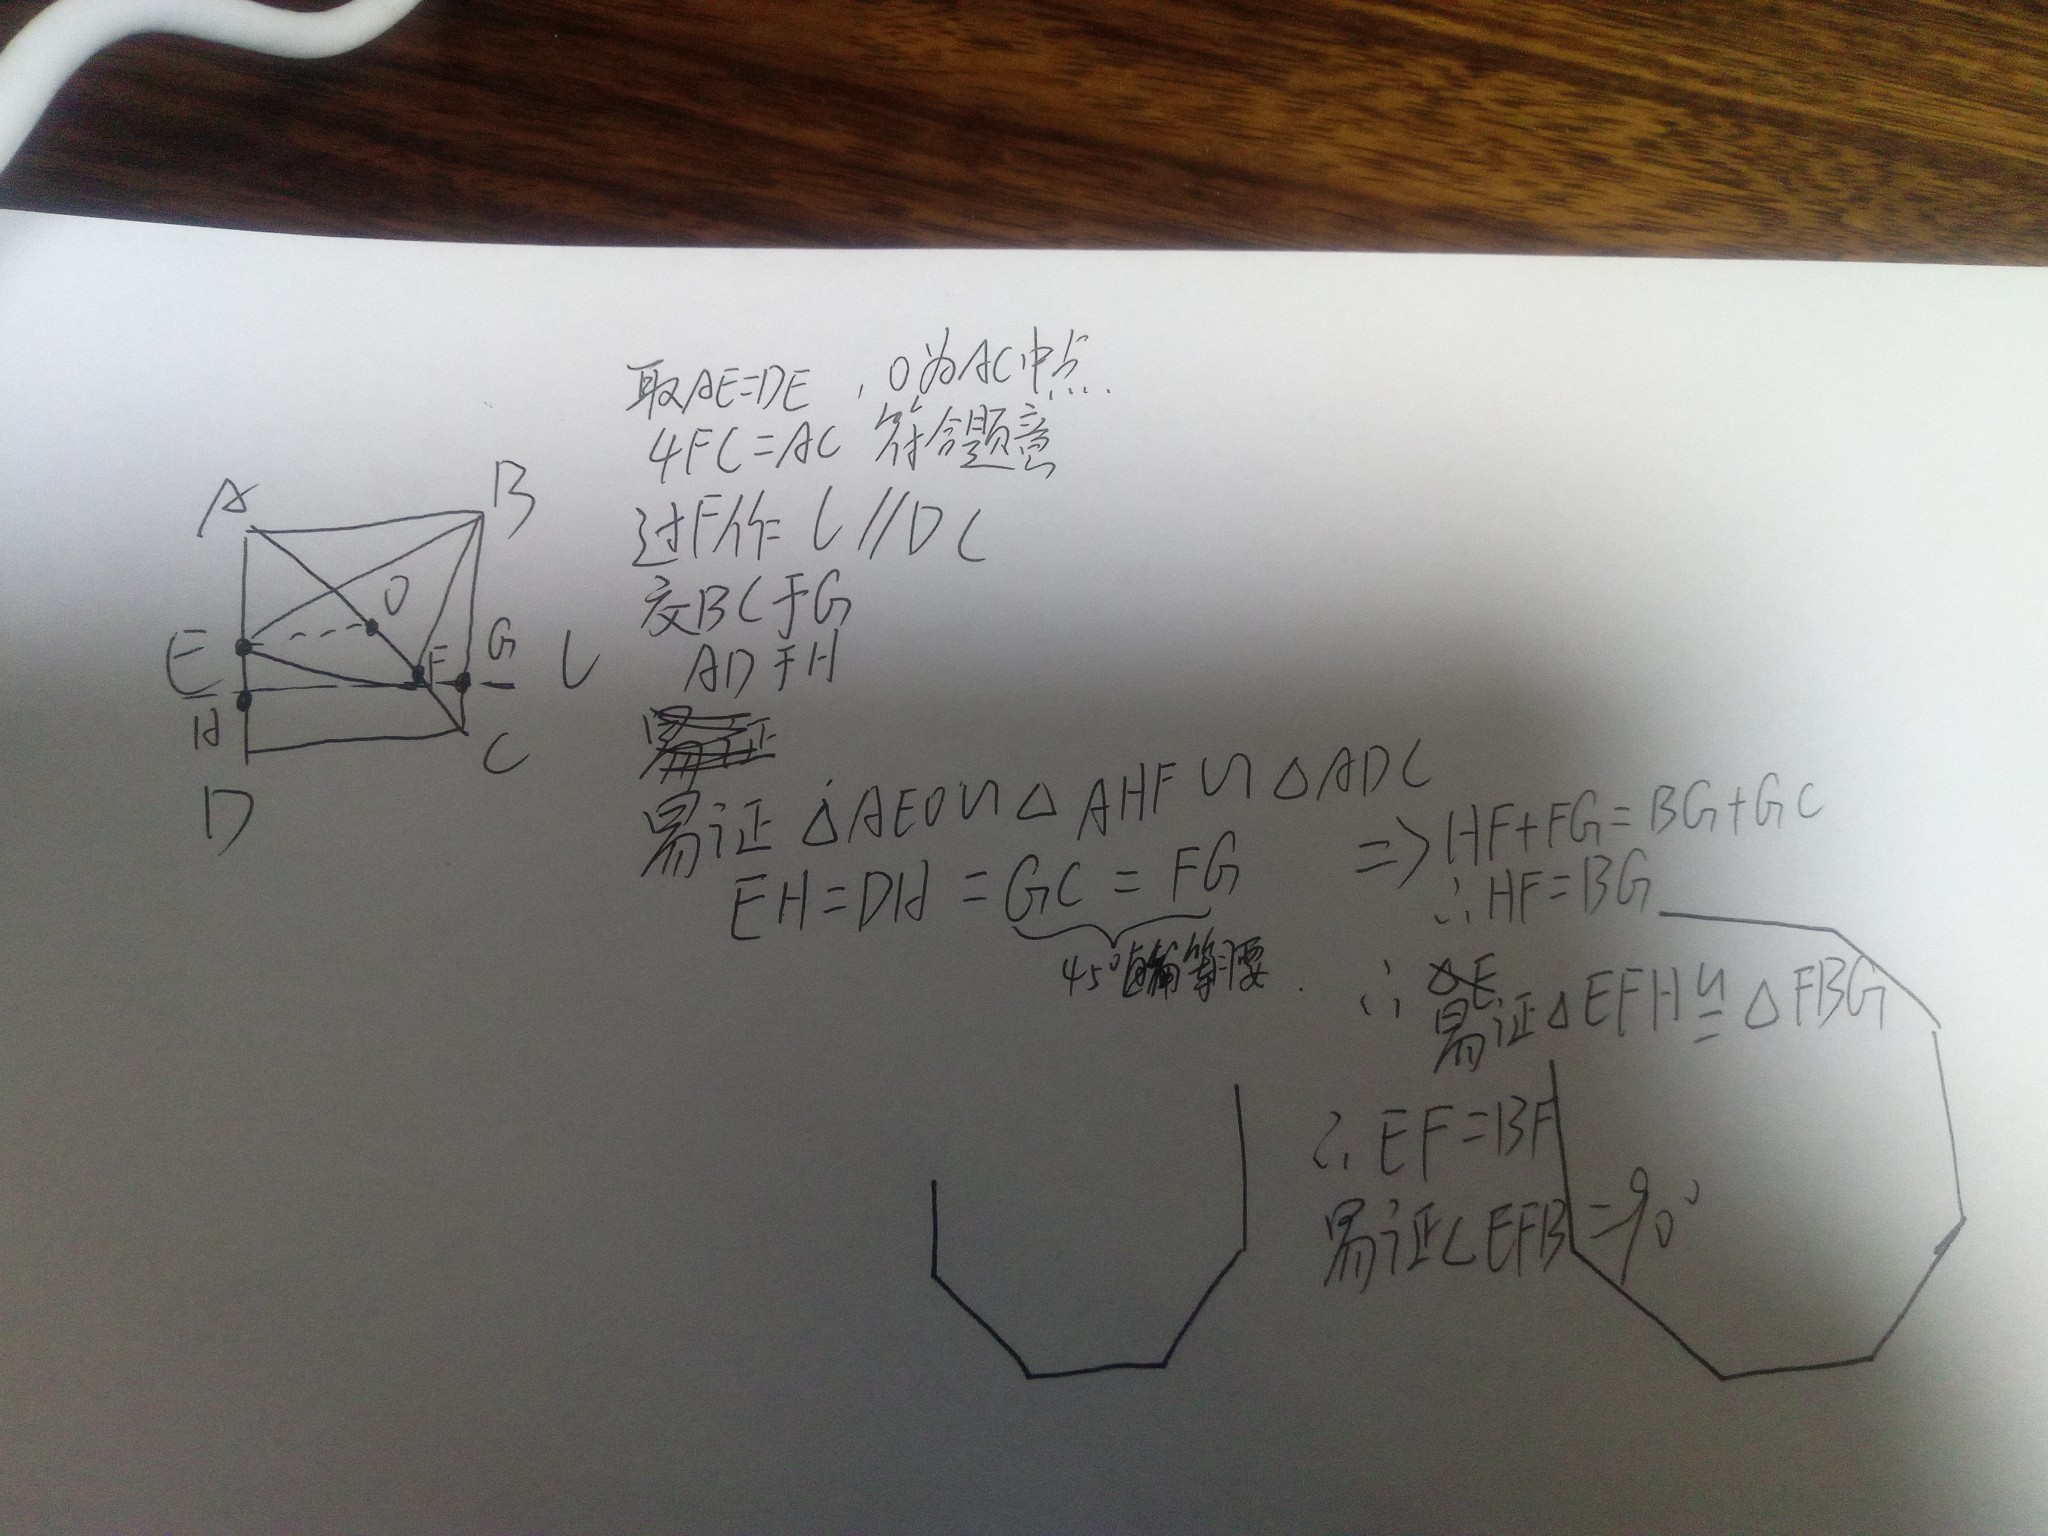 取AE=DE，O为AC中点.
4FC=AC 符合题意
过F作 l//DC
交BC于G
AD于H
易证 △AEO∽△AHF∽△ADC
EH=DH=GC=FG
45°
等腰
=> HF+FG=BG+GC
∴HF=BG
∴
易证△EFH≌△FBG
∴EF=BF
易证∠EFB=90°
A
B
O
E
F
G
l
H
C
D